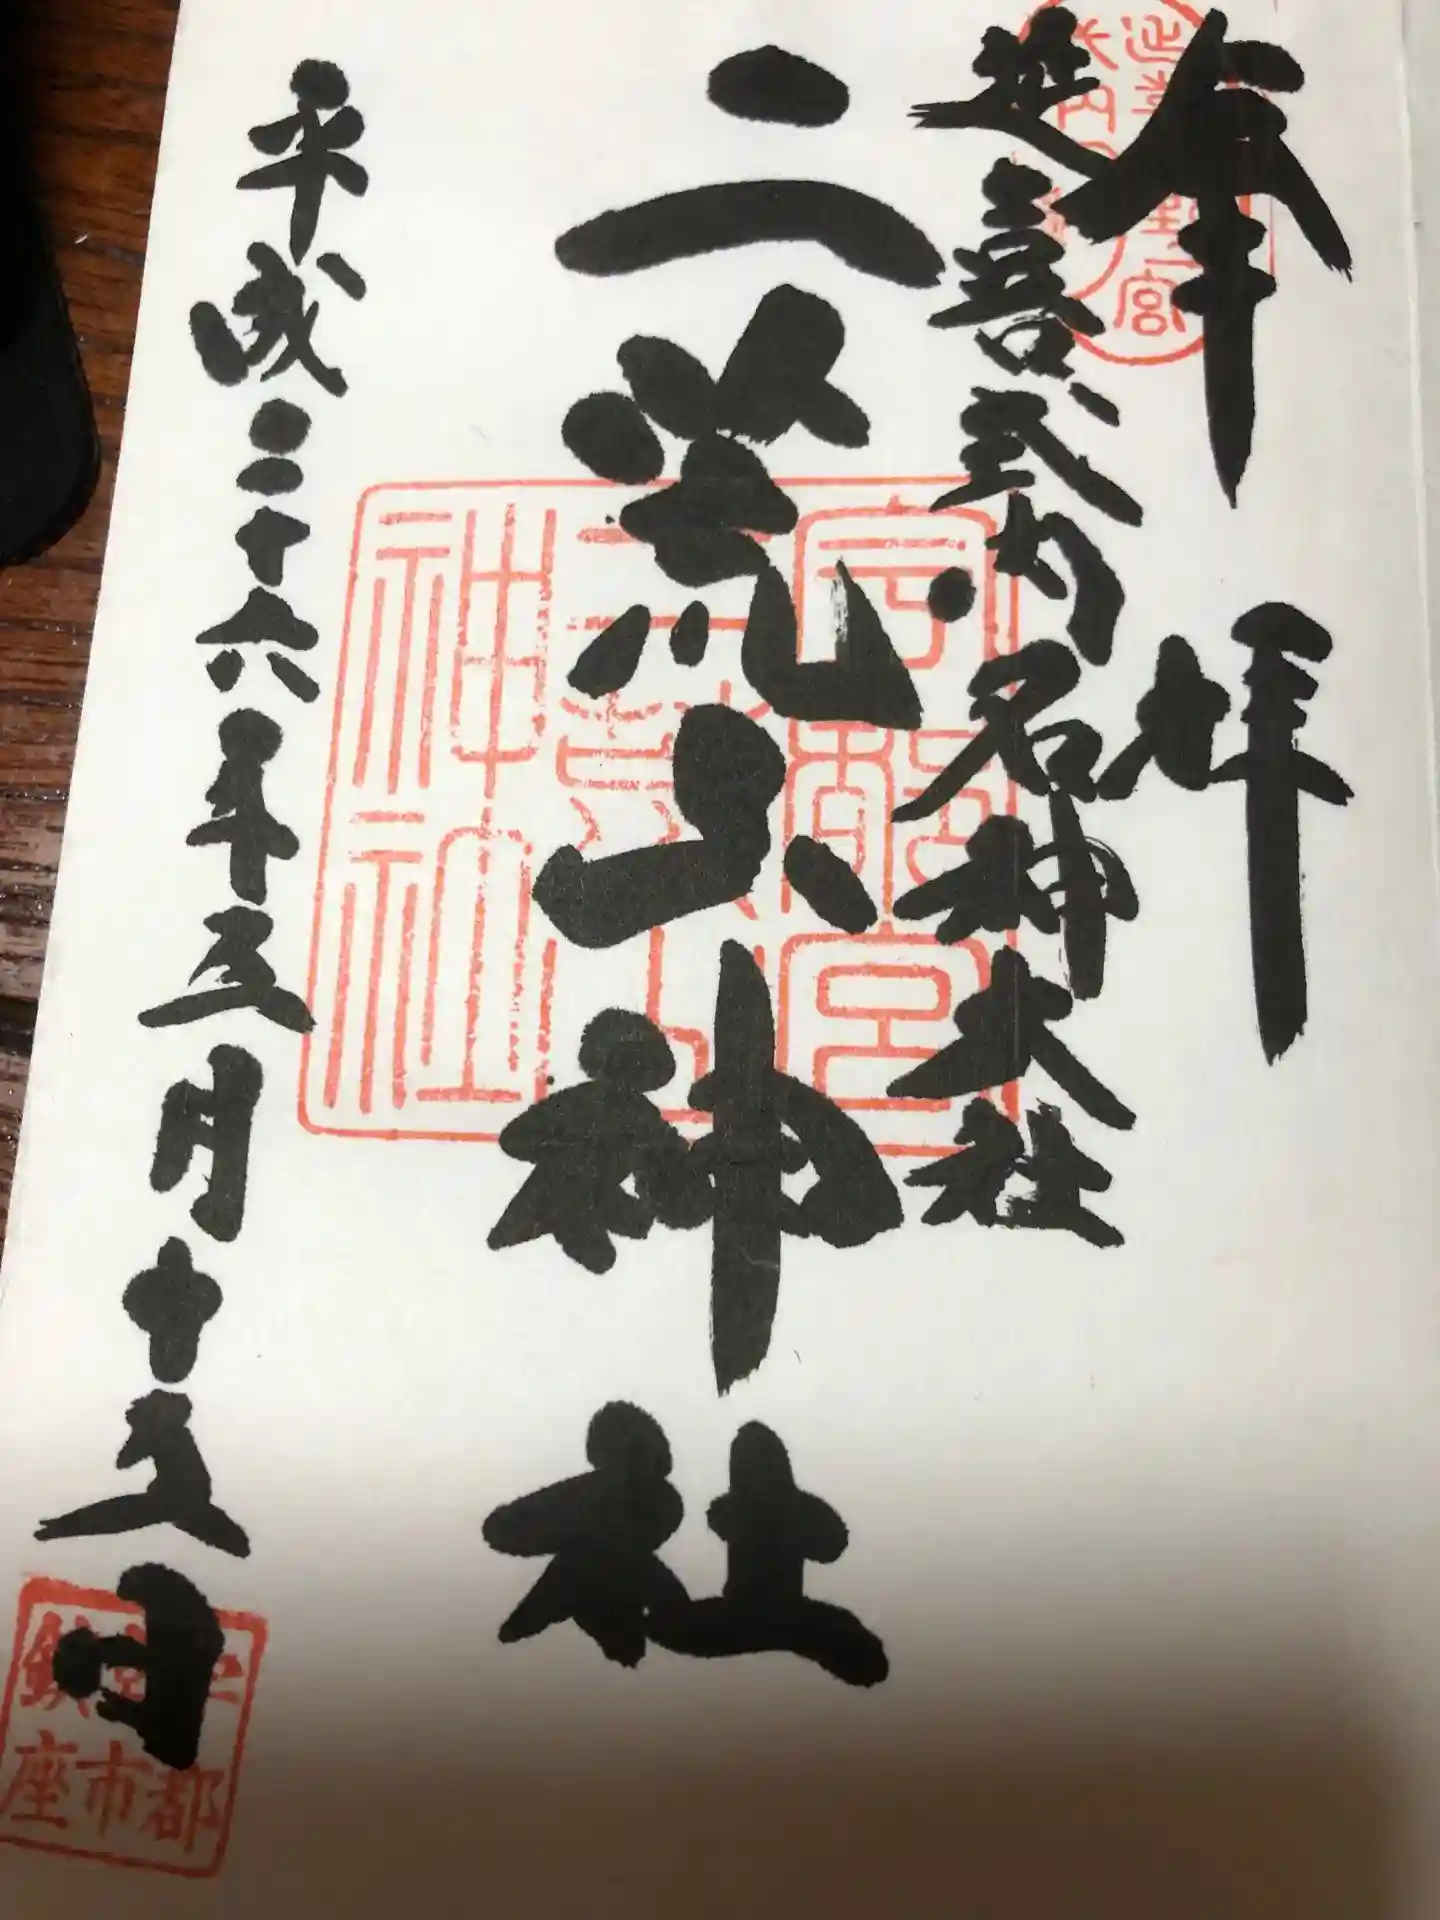 奉拝
延喜式内名神大社
二荒山神社
平成二十六年五月十五日
宇都宮
二荒山
神社
宇都
宮市
鎮座